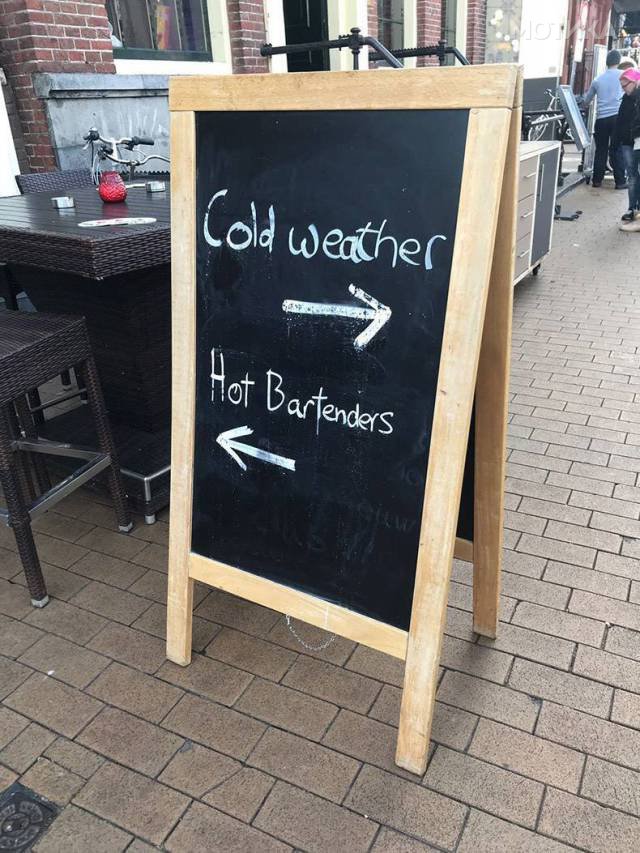 МОТИКА
Cold weather
→
Hot Bartenders
←